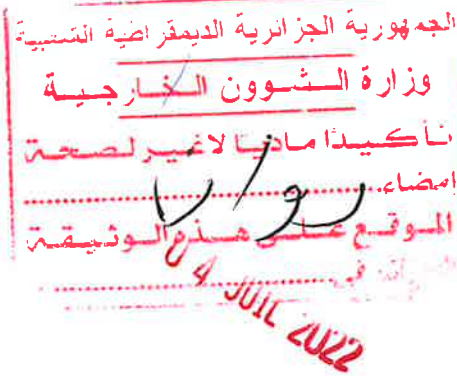 الجمهورية الجزائرية الديمقراطية الشعبية
وزارة الشؤون الخارجية
تأكيدا ماديا لاغير لصحة
إمضاء
الموقع على هذه الوثيقة
في
04 JUIL 2022